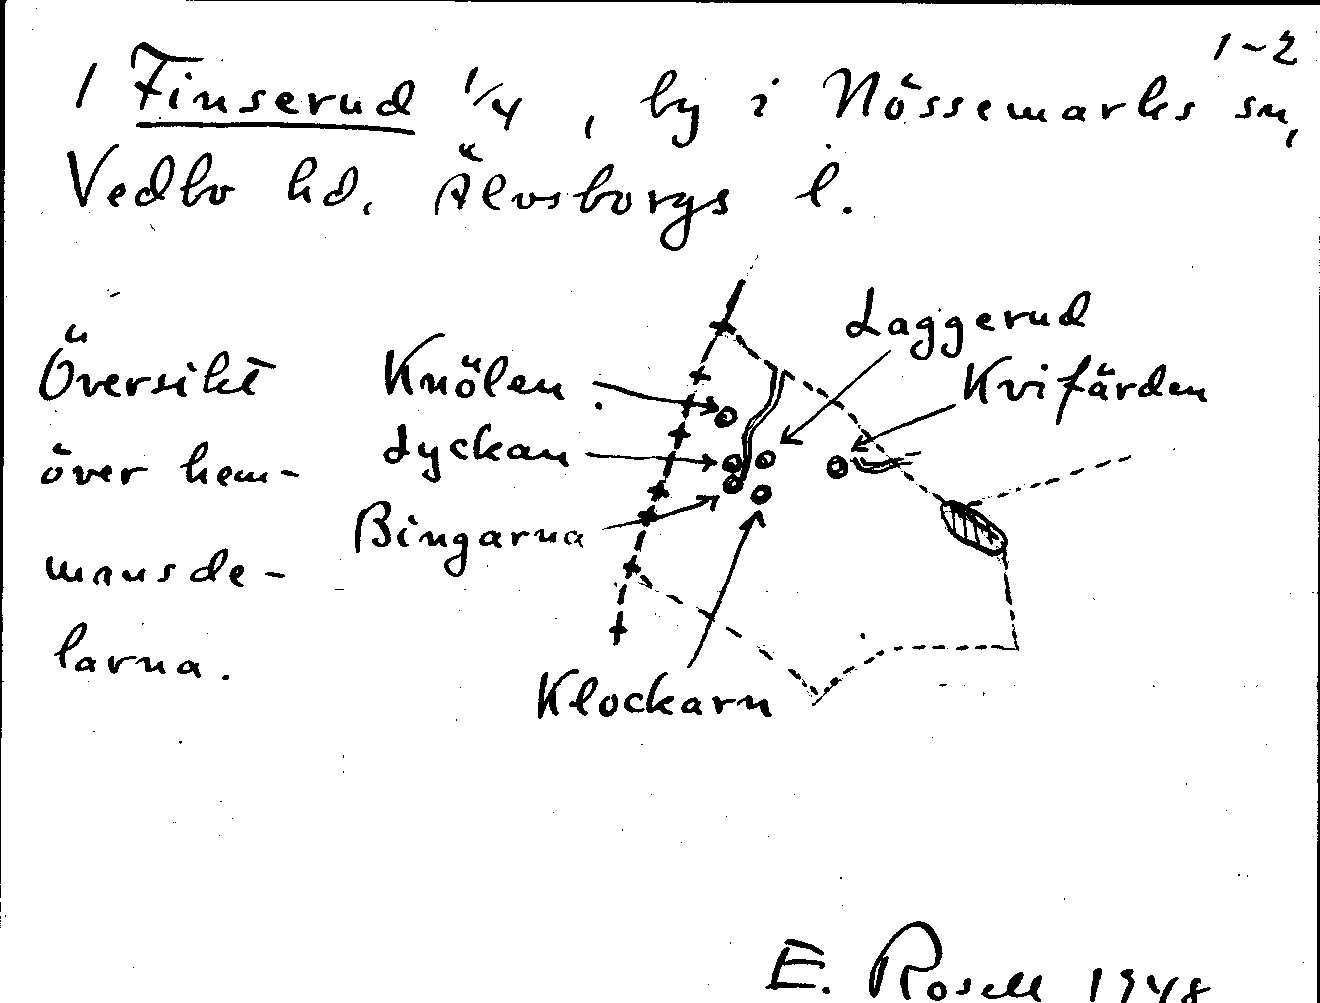 1-2
1 Finserud 1/4, by i Nössemarks sn,
Vedbo hd. Älvsborgs l.
Översikt
över hem-
mansde-
larna.
Laggerud
Kvifärden
Knölen
Lyckan
Bingarna
Klockarn
E. Rosell 1948